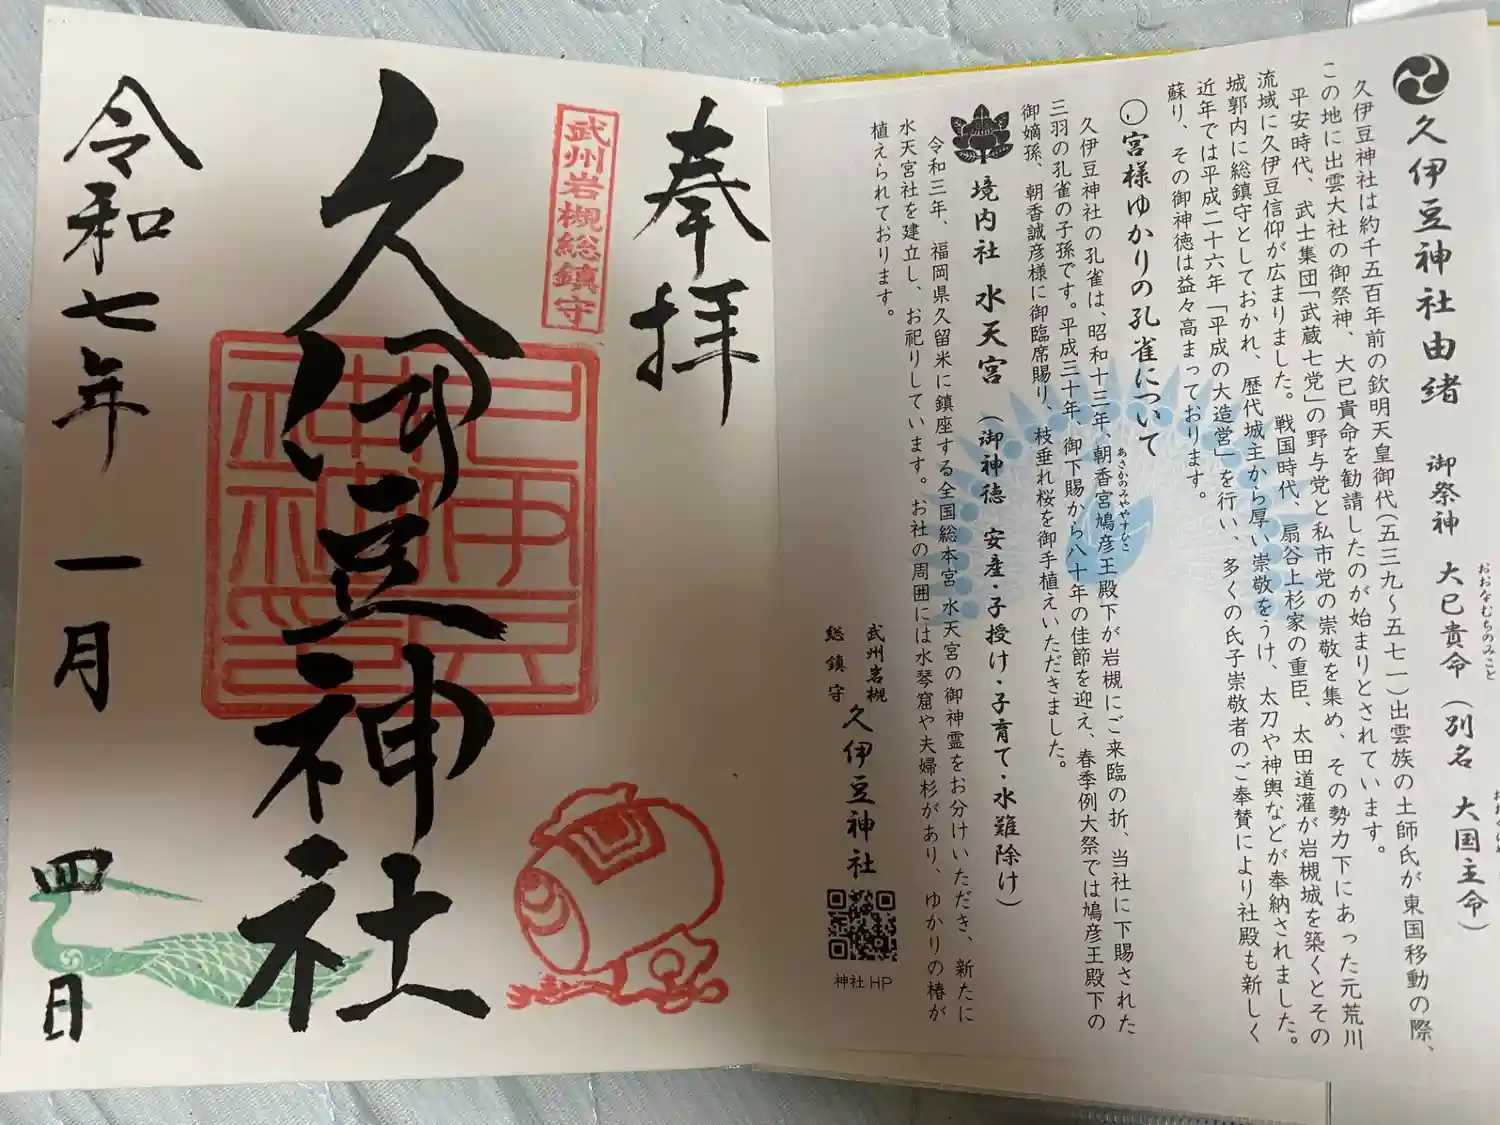 久伊豆神社由緒 御祭神 大已貴命(別名 大国主命)
おおなむちのみこと
久伊豆神社は約千五百年前の欽明天皇御代(五三九～五七一)出雲族の土師氏が東国移動の際、
この地に出雲大社の御祭神、大已貴命を勧請したのが始まりとされています。
平安時代、武士集団「武蔵七党」の野与党と私市党の崇敬を集め、その勢力下にあった元荒川
流域に久伊豆信仰が広まりました。戦国時代、扇谷上杉家の重臣、太田道灌が岩槻城を築くとその
城郭内に総鎮守としておかれ、歴代城主から厚い崇敬をうけ、太刀や神輿などが奉納されました。
近年では平成二十六年「平成の大造営」を行い、多くの氏子崇敬者のご奉賛により社殿も新しく
蘇り、その御神徳は益々高まっております。
宮様ゆかりの孔雀について
あさかのみややすひこ
久伊豆神社の孔雀は、昭和十三年、朝香宮鳩彦王殿下が岩槻にご来臨の折、当社に下賜された
三羽の孔雀の子孫です。平成三十年、御下賜から八十年の佳節を迎え、春季例大祭では鳩彦王殿下の
御嫡孫、朝香誠彦様に御臨席賜り、枝垂れ桜を御手植えいただきました。
境内社 水天宮 (御神徳 安産・子授け・子育て・水難除け)
令和三年、福岡県久留米に鎮座する全国総本宮 水天宮の御神霊をお分けいただき、新たに
水天宮社を建立し、お祀りしています。お社の周囲には水琴窟や夫婦杉があり、ゆかりの椿が
植えられております。
武州岩槻
総鎮守
久伊豆神社
神社HP
奉拝
武州岩槻総鎮守
久伊豆神社
令和七年 一月 四日